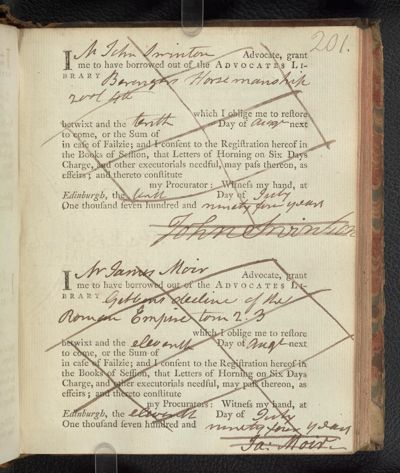 201.
I Mr John Swinton Advocate, grant
me to have borrowed out of the ADVOCATES LI-
BRARY Berengers Horsemanship
2 vol 4to
which I oblige me to reſtore
betwixt and the tenth Day of Augt next
to come, or the Sum of
in caſe of Failzie; and I conſent to the Regiſtration hereof in
the Books of Seſſion, that Letters of Horning on Six Days
Charge, and other executorials needful, may paſs thereon, as
effeirs; and thereto conſtitute
my Procurator: Witneſs my hand, at
Edinburgh, the tenth Day of July
One thouſand ſeven hundred and ninety four years
John Swinton
I Mr James Moir Advocate, grant
me to have borrowed out of the ADVOCATES LI-
BRARY Gibbons decline of the
Roman Empire tom 2. 3
which I oblige me to reſtore
betwixt and the eleventh Day of Augt next
to come, or the Sum of
in caſe of Failzie; and I conſent to the Regiſtration hereof in
the Books of Seſſion, that Letters of Horning on Six Days
Charge, and other executorials needful, may paſs thereon, as
effeirs; and thereto conſtitute
my Procurators: Witneſs my hand, at
Edinburgh, the eleventh Day of July
One thouſand ſeven hundred and ninety four years
Ja: Moir